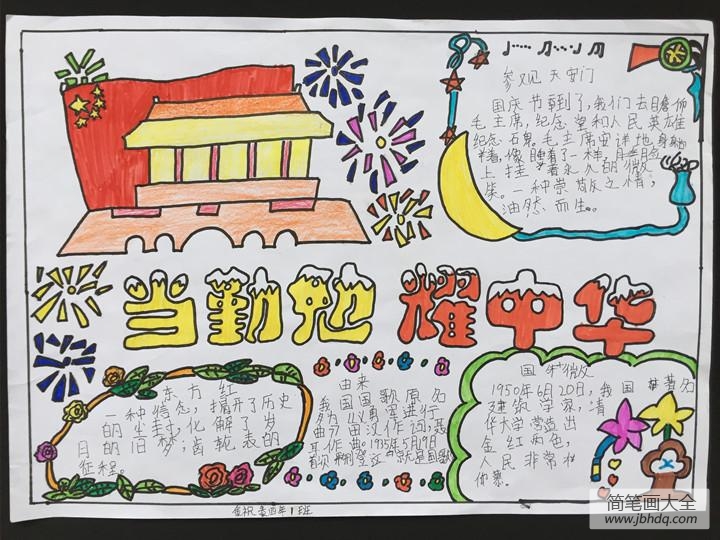 参观天安门
国庆节到了,我们去瞻仰
毛主席,纪念堂和人民英雄
纪念石卑。毛主席安详地
着,像睡着了一样,
上挂着永久的微
笑。一种崇敬之情,
油然而生。
当勤勉 耀中华
东方红
一种信念,揭开了历史
的尘封,化解了岁
月的旧梦;齿轮表的
征程。
由来
我国国歌原名
为义勇军进行
曲,
耳作曲。1935年5月9日
就是国歌
国徽
1950年6月20日,我国著名
建筑学家,清
华大学营造出
金红两色,
人民非常
仰慕。
1班
简笔画大全
www.jbhdq.com